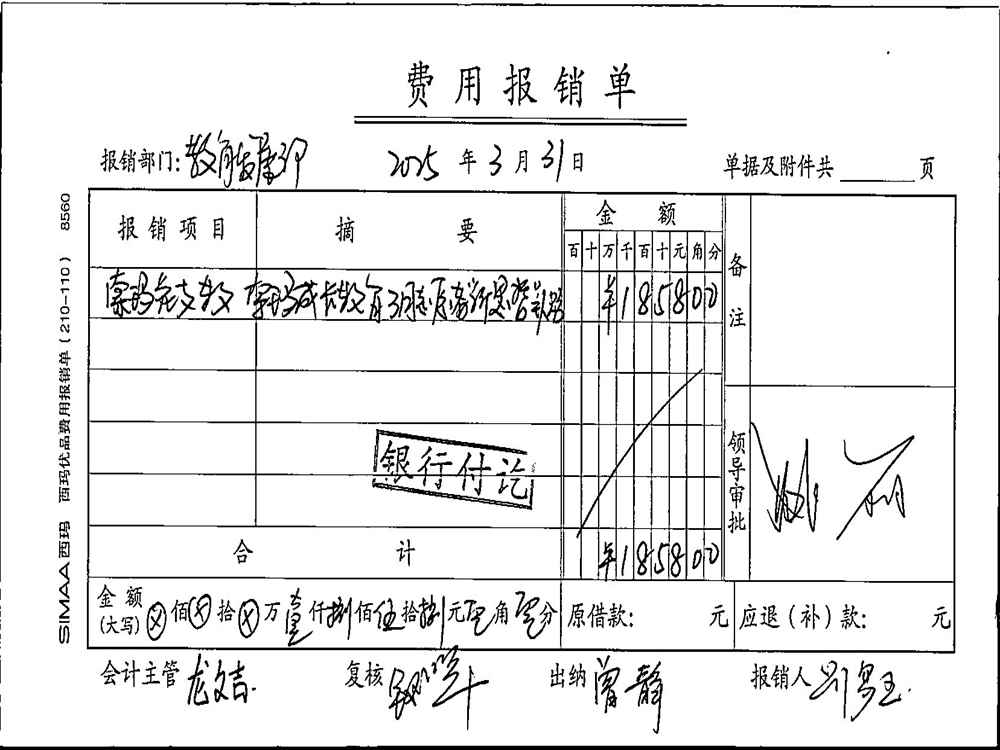 费用报销单
报销部门: 教育发展部 2025 年 3 月 31 日 单据及附件共 页
报销项目 摘要 金额 备注
百 十 万 千 百 十 元 角 分
3月 ¥1858 00
银行付讫
领导审批
合计 ¥1858 00
金额(大写) ⊗佰⊗拾⊗万壹仟捌佰伍拾捌元零角零分 原借款: 元 应退(补)款: 元
会计主管 龙文吉 复核 出纳 曾静 报销人
SIMAA 西玛 西玛优品费用报销单(210-110) 8560